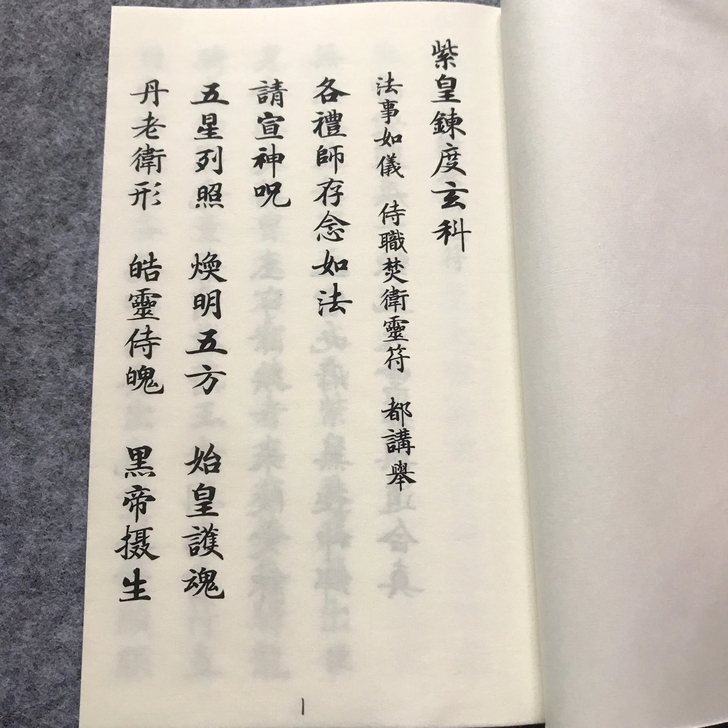 紫皇鍊度玄科
法事如儀 侍職焚衛靈符 都講舉
各禮師存念如法
請宣神呪
五星列照 煥明五方 始皇護魂
丹老衛形 皓靈侍魄 黑帝摄生